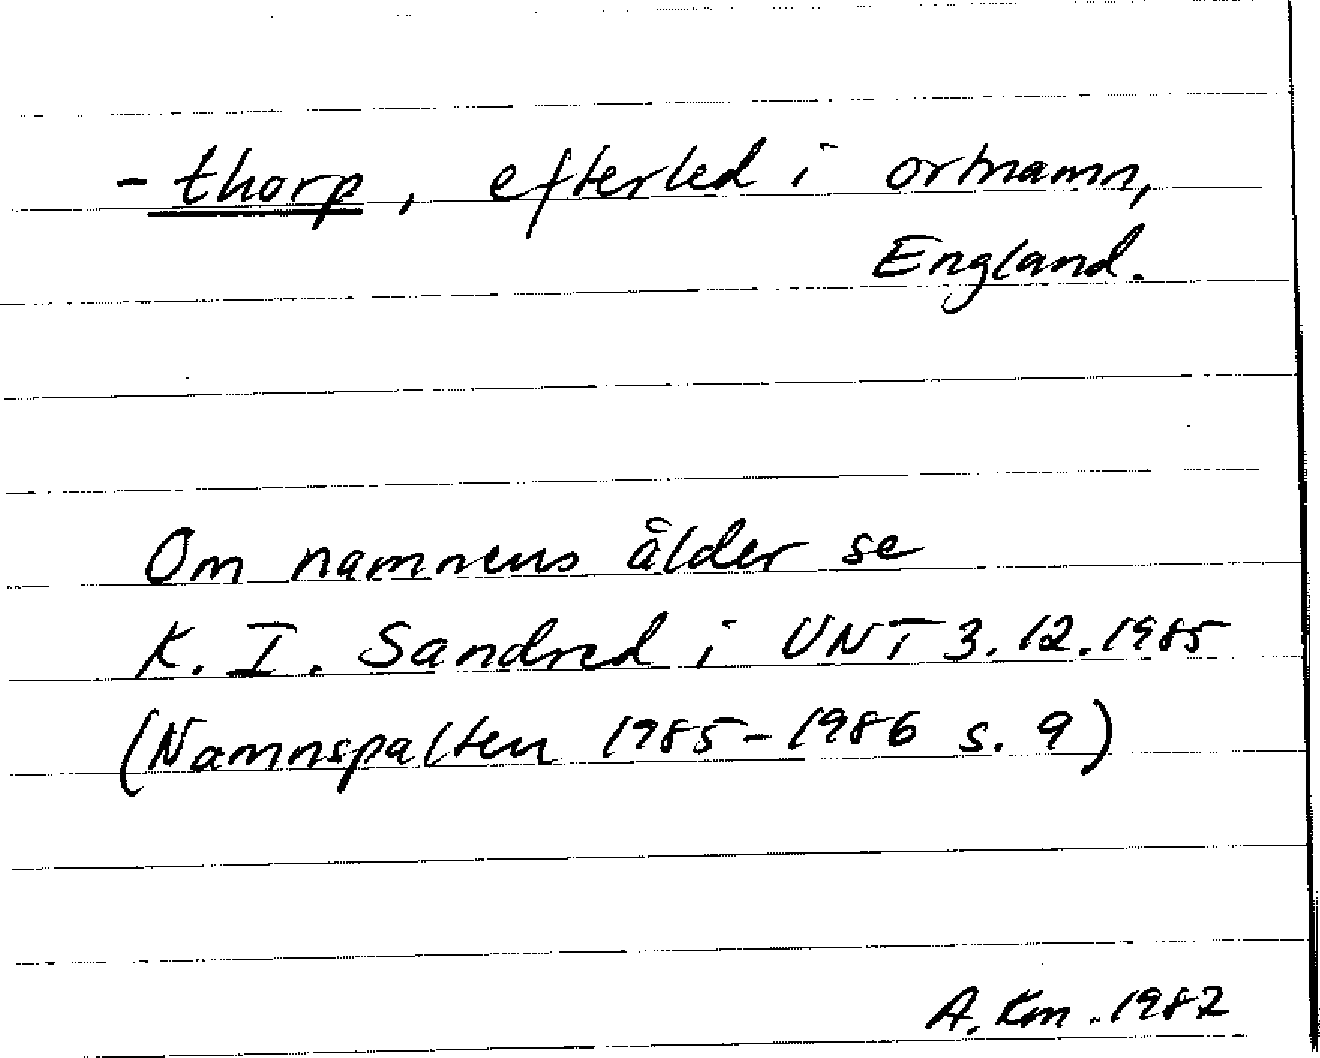 -thorp, efterled i ortnamn,
England.
Om namnens ålder se
K. I. Sandred i UNT 3.12.1985
(Namnspalten 1985-1986 s. 9)
A. Km. 1987